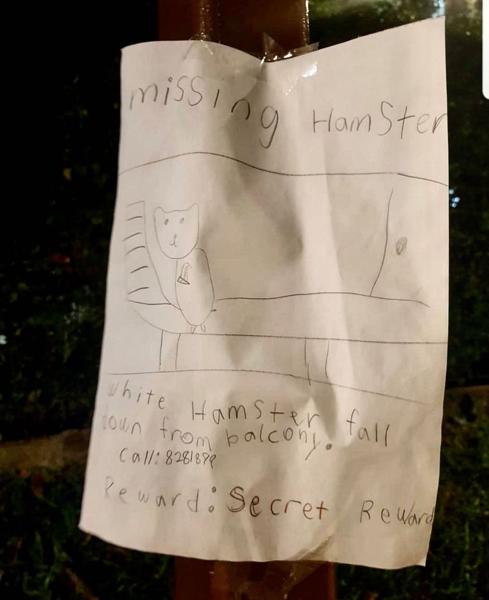 missing Hamster
white Hamster fall
down from balcony.
call:
Reward: Secret Reward